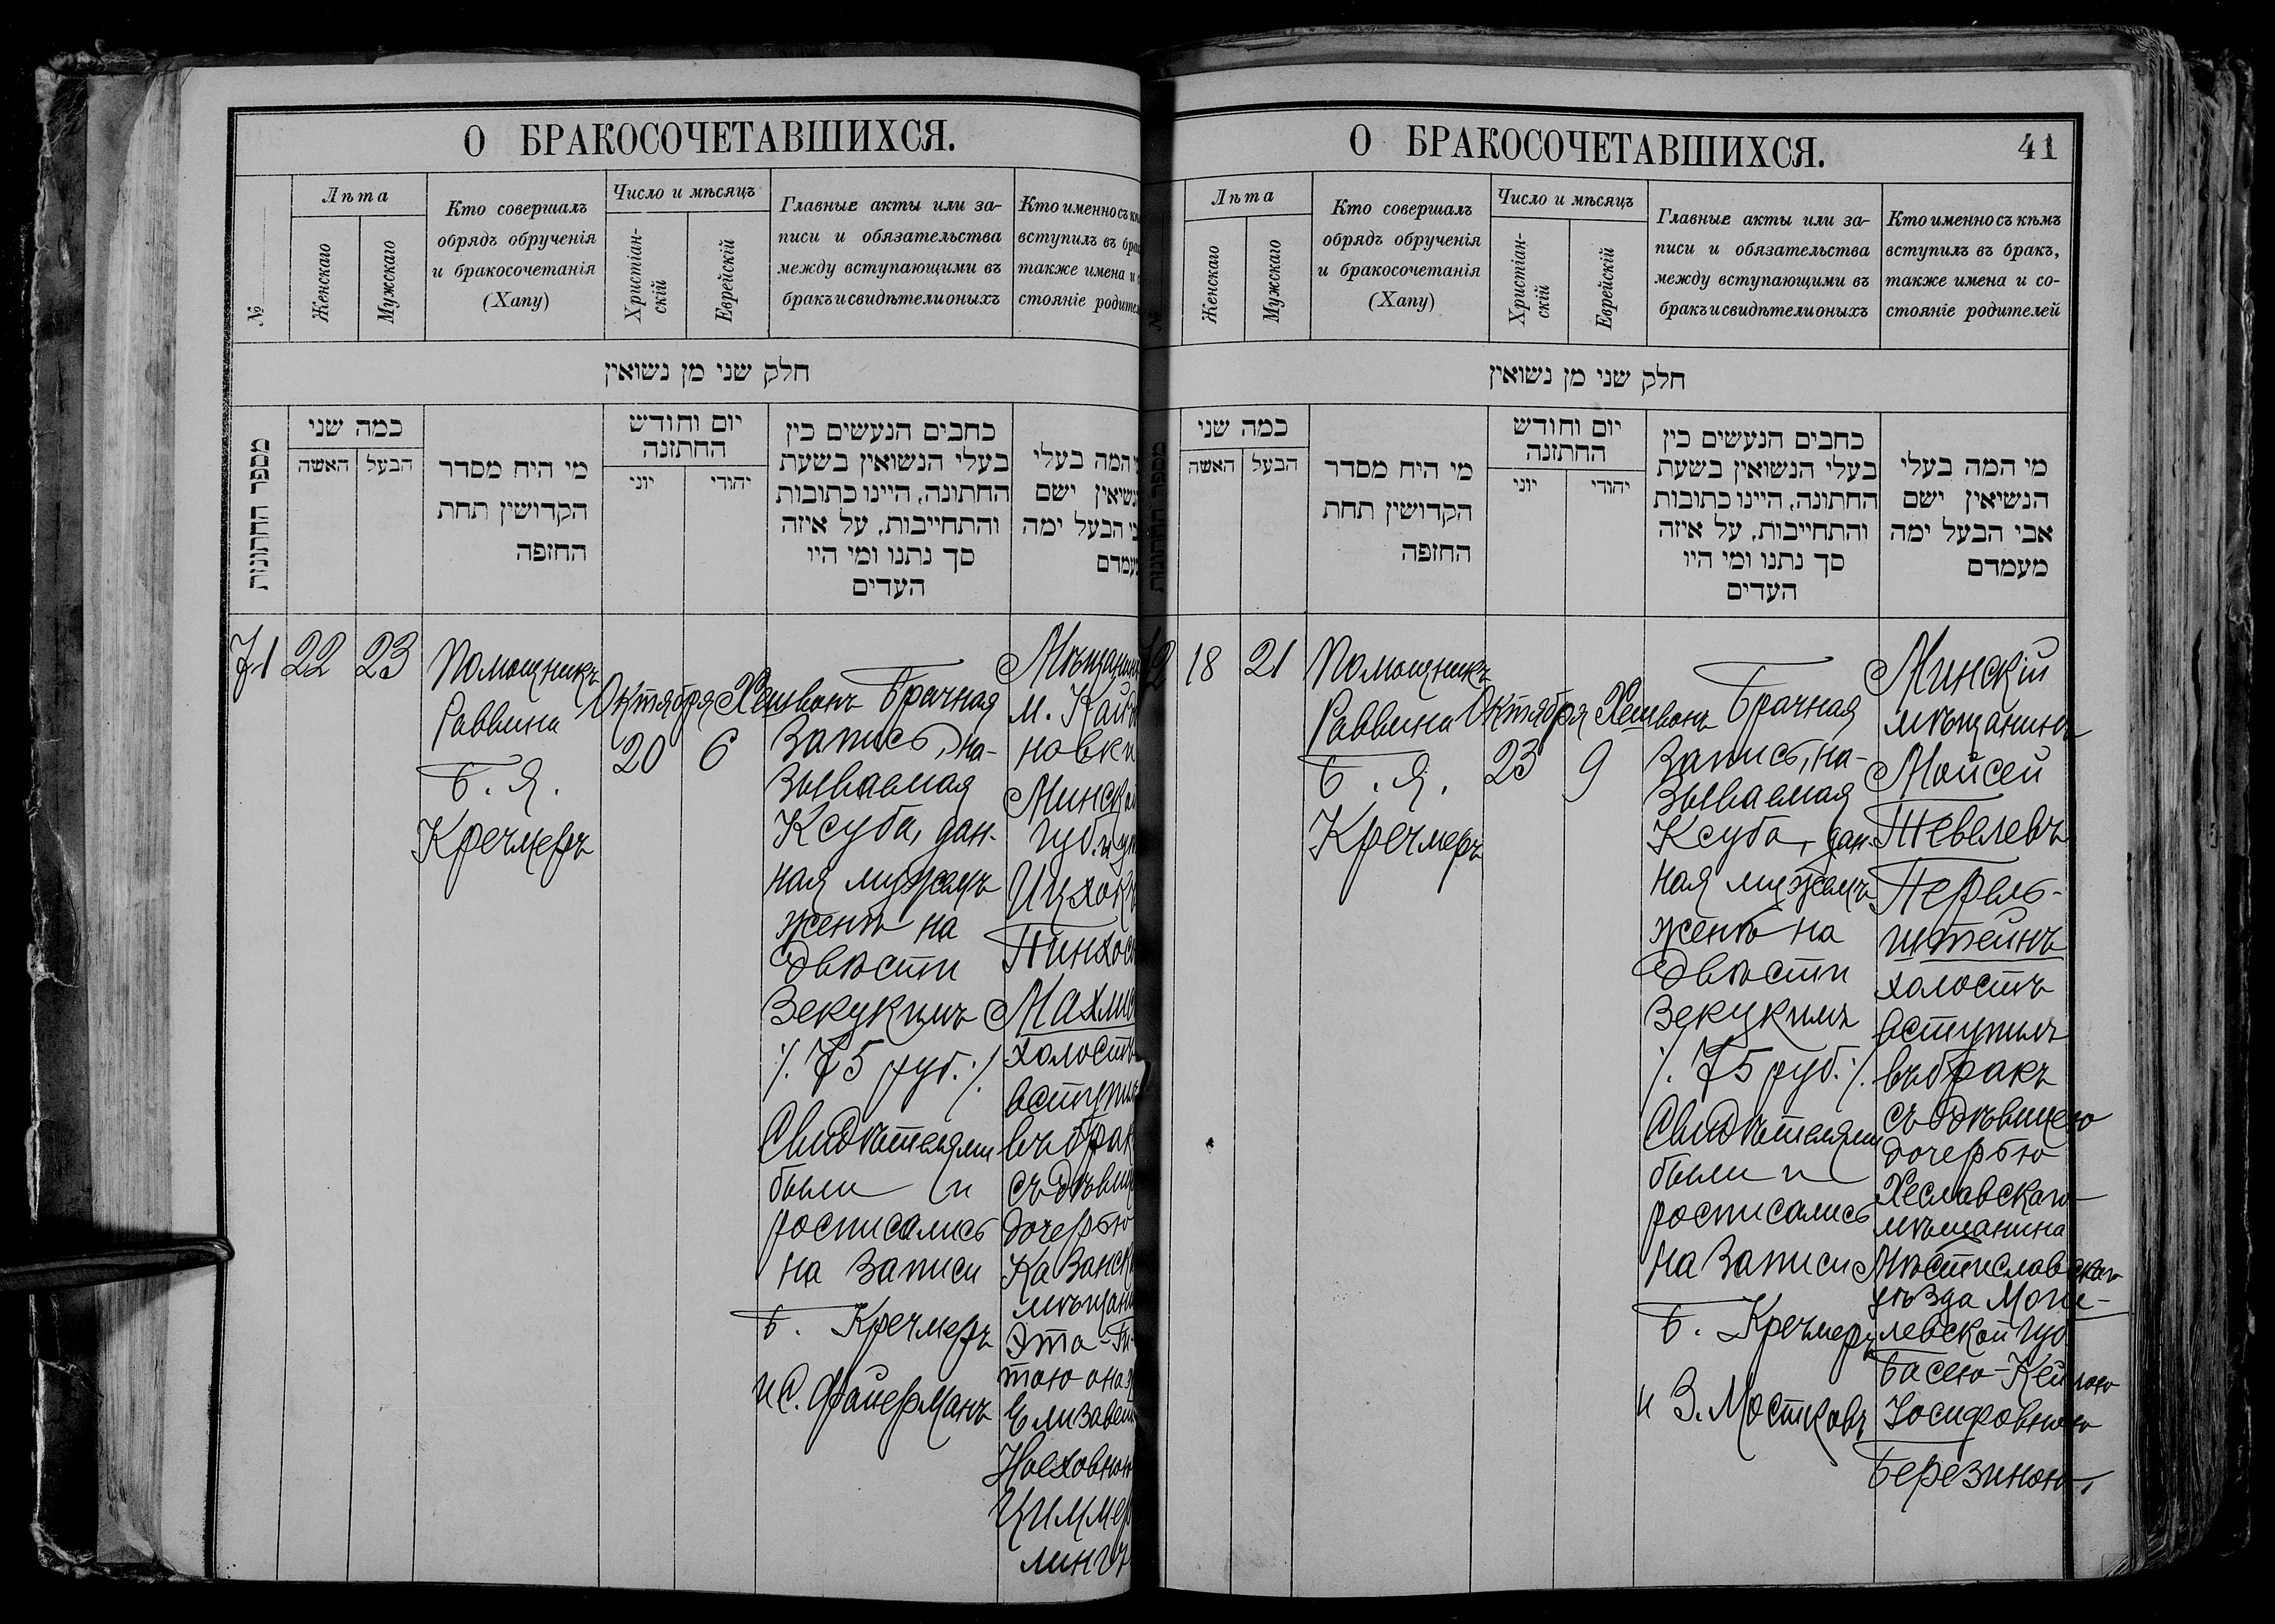 О БРАКОСОЧЕТАВШИХСЯ.
№
Лѣта
Женскаго
Мужскаго
Кто совершалъ
обрядъ обрученія
и бракосочетанія
(Хапу)
Число и мѣсяцъ
Христіан-
скій
Еврейскій
Главные акты или за-
писи и обязательства
между вступающими въ
бракъ и свидѣтели оныхъ
Кто именно съ
вступилъ въ
также имена и
стояніе
חלק שני מן נשואין
מספר החתונות
במה שני
האשה
הבעל
מי היח מסדר
הקדושין תחת
החזפה
יום וחודש
החתזנה
יוני
יהודי
כחבים הנעשים כין
בעלי הנשואין בשעת
החתונה, היינו כתובות
והתחייבות, על איזה
סך נתנו ומי היו
העדים
המה בעלי
ישם
הבעל ימה
71
22
23
Помощникъ
Раввина
Б. Я.
Кречмеръ
Октября
20
Хешвонъ
6
Брачная
Запись, на-
зываемая
Ксуба, дан-
ная мужемъ
женѣ на
Двѣсти
Зекукимъ
/. 75 руб. /.
Свидѣтелями
были и
росписались
на записи
Б. Кречмеръ
и С. Файерманъ
м.
новки
Холостъ
дочерью
Эта-
тою она
Циммер
лингъ
О БРАКОСОЧЕТАВШИХСЯ.
41
Лѣта
Женскаго
Мужскаго
Кто совершалъ
обрядъ обрученія
и бракосочетанія
(Хапу)
Число и мѣсяцъ
Христіан-
скій
Еврейскій
Главные акты или за-
писи и обязательства
между вступающими въ
бракъ и свидѣтели оныхъ
Кто именно съ кѣмъ
вступилъ въ бракъ,
также имена и со-
стояніе родителей
חלק שני מן נשואין
במה שני
האשה
הבעל
מי היח מסדר
הקדושין תחת
החזפה
יום וחודש
החתזנה
יוני
יהודי
כחבים הנעשים כין
בעלי הנשואין בשעת
החתונה, היינו כתובות
והתחייבות, על איזה
סך נתנו ומי היו
העדים
מי המה בעלי
הנשיאין ישם
אבי הבעל ימה
מעמדם
18
21
Помощникъ
Раввина
Б. Я.
Кречмеръ
Октября
23
Хешвонъ
9
Брачная
Запись, на-
зываемая
Ксуба, дан-
ная мужемъ
женѣ на
Двѣсти
Зекукимъ
/. 75 руб. /.
Свидѣтелями
были и
росписались
на записи
Б. Кречмеръ
и З. Мостковъ
Минскій
мѣщанинъ
Мойсей
Тевелевъ
Перель-
штейнъ
холостъ
вступилъ
въ бракъ
съ дѣвицею
дочерью
Хеславскаго
мѣщанина
Мѣстиславскаго
уѣзда Моги-
левской губ
Басею-Кейлою
Іосифовною
Березиною.